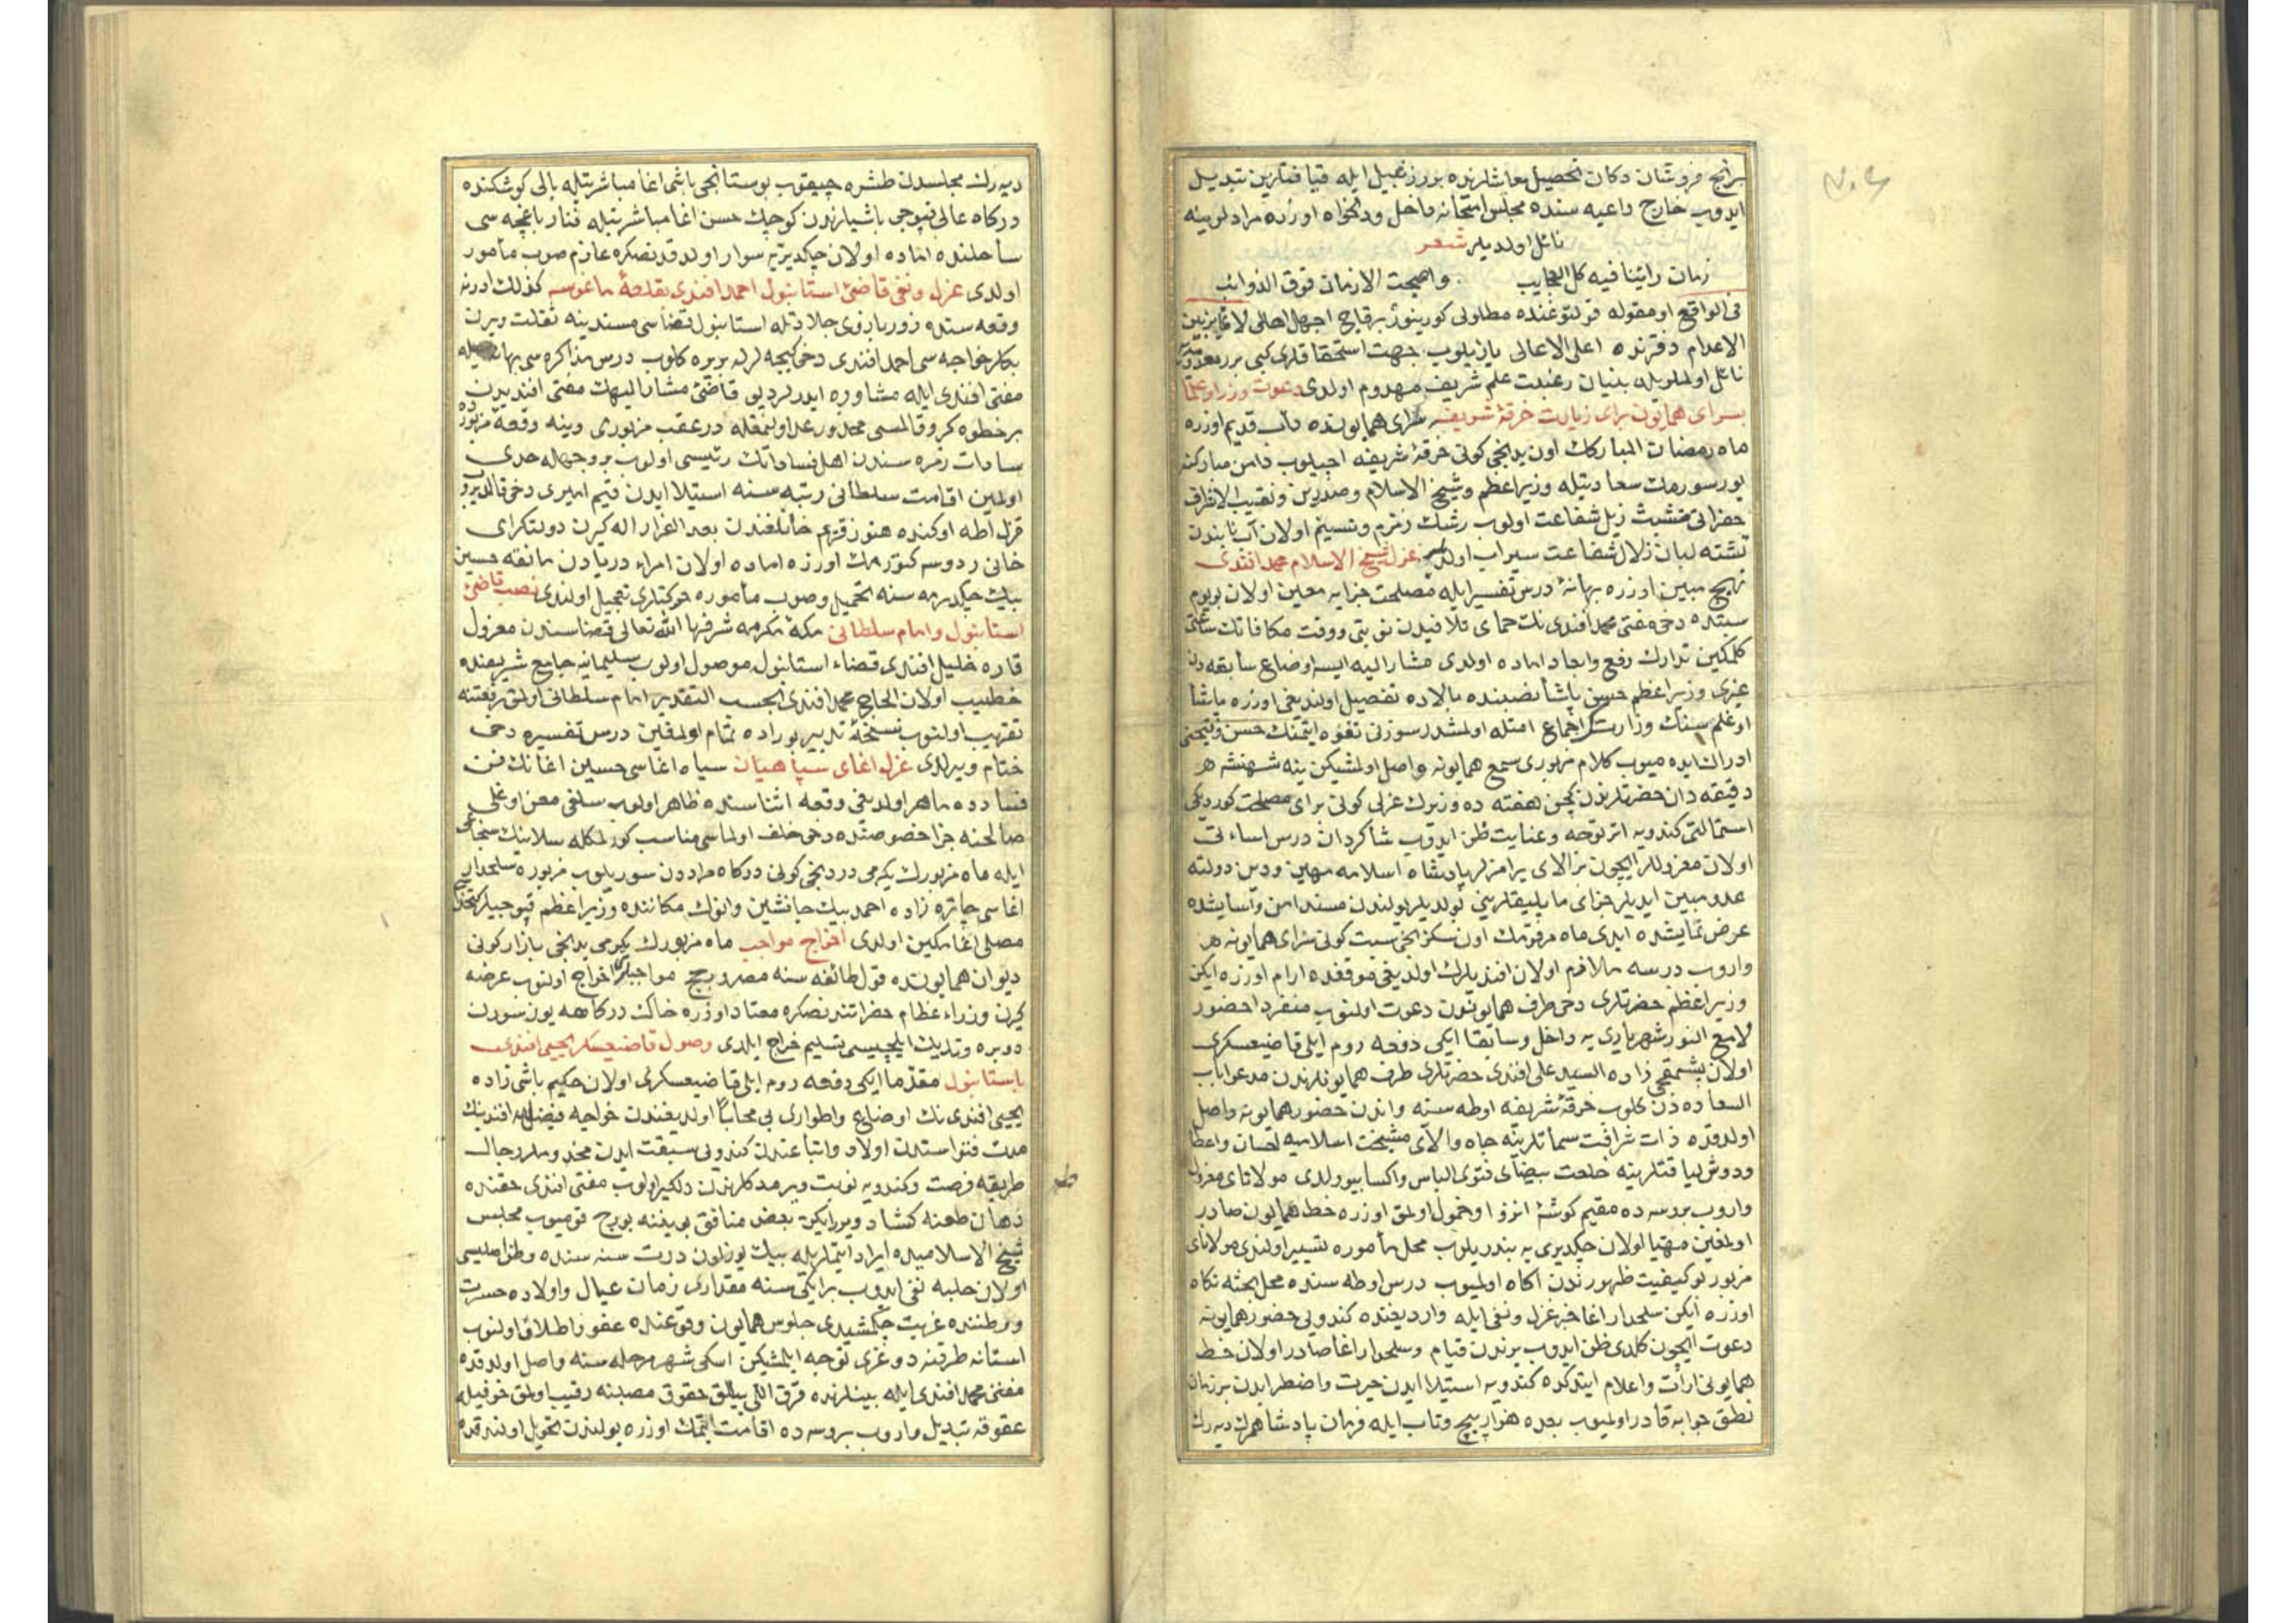 برنج فروشان دكان تحصيل معاشلرنده بورزنبيل ايله قيافتلرين تبديل
ايدوب خارج داعيه سنده مجلس امتحانه داخل ودلخواه اوزره مرادلرينه
نائل اولديلر شعر
زمان راينا فيه كل العجايب واصبحت الازمان فوق الذوائب
فى الواقع اومقوله قولتوغنده مطاولى كورينور برقاج اجهل اهالى
الاعدام دفترنده اعلى الاعالى يازيلوب جهت استحقاقلرى كبى بر
نائل اولملريله بنيان رغبت علم شريف مهدوم اولدى دعوت وزرا وعلما
بسراى همايون براى زيارت خرقۀ شريفه سراى همايونده داب قديم اوزره
ماه رمضان المباركك اون يدنجى كونى خرقۀ شريفه اچيلوب دامن مباركنه
يوزسورمك سعادتيله وزيراعظم وشيخ الاسلام وصدرين ونقيب الاشراف
حضراتى متشبث زيل شفاعت اولوب رشك زمزم وتسنيم اولان آب نابندن
تشنه لبان زلال شفاعت سيراب اولديلر عزل شيخ الاسلام محمد افندى
نهج مبين اوزره بهانۀ درس تفسير ايله مصلحت جزايه معين اولان بويوم
سبتده دخى مفتى محمد افندى نك حماى قلافيدن نوبتى ووقت مكافاتك ساعتى
كلمكين تدارك رفع وابعاد اماده اولدى مشار اليه ايسه اوضاع سابقه دن
غيرى وزيراعظم حسن پاشا نصبنده بالاده تفصيل اولنديغى اوزره پاشا
اوغلم سنك وزارتك اجماع امتله اولمشدر سوزنى تفوه ايتمنك حسن وقبحنى
ادراك ايده ميوب كلام مزبورى سمع همايونه واصل اولمشيكن ينه شهنشه هر
دقيقه دان حضرتلرندن كچن هفته ده وزيرك عزلى كونى براى مصلحت كوردكى
استمالتى كندويه اثر توجه وعنايت ظن ايدوب شاكردان درس اساءتى
اولان معزوللر ايچون بز الاى يرامزلر پادشاه اسلامه مهين ودين دولته
عدو مبين ايديلر جزاى ما يليقلريني بولديلر بولندن مسند امن وآسايشده
عرض نمايشده ايدى ماه مرقومك اون سكزنجى سبت كونى سراى همايونه هر
واروب درسه ملازم اولان افنديلرك اولديغى موقفده ارام اوزره ايكن
وزيراعظم حضرتلرى دخى طرف همايوندن دعوت اولنوب منفردا حضور
لامع النور شهرياري يه داخل وسابقا ايكى دفعه روم ايلى قاضيعسكرى
اولان پشمقجى زاده السيد على افندى حضرتلرى طرف همايونلرندن مدعوا باب
السعاده دن كلوب خرقۀ شريفه اوطه سنه واندن حضور همايونه واصل
اولدقده ذات شرافت سماتلرينه جاه والاى مشيخت اسلاميه احسان واعطا
ودوش لياقتلرينه خلعت بيضاى فتوى الباس واكسا بيورلدى مولاناى معزول
واروب بروسه ده مقيم كوشۀ انزوا وخمول اولمق اوزره خط همايون صادر
اولمغين مهيا اولان چكديرى يه بندريلوب محل مأموره تسيير اولندى مولاناى
مزبور بو كيفيت ظهورندن اكاه اولميوب درس اوطه سنده محل بحثه نكاه
اوزره ايكن سلحدار اغا خبر عزل ونفى ايله وارديغنده كندويى حضور همايونه
دعوت ايچون كلدى ظن ايدوب يرندن قيام وسلحدار اغا صادر اولان خط
همايونى ارائت واعلام ايتدكده كندويه استيلا ايدن حيرت واضطرابدن بر زمان
نطق جوابه قادر اولميوب بعده هزار پيچ وتاب ايله فرمان پادشاهمك ديه رك
ديه رك مجلسدن طشره چيقوب بوستانجى باشى اغا مباشرتيله يالى كوشكنده
دركاه عالى قپوجى باشيلرندن كوچك حسن اغا مباشرتيله فنار باغچه سى
ساحلنده اماده اولان چكديريه سوار اولدقدنصكره عازم صوب مأمور
اولدى عزل ونفى قاضئ استانبول احمد افندى بقلعۀ ماغوسه كذلك ادرنه
وقعه سنده زور بازوى جلادتله استانبول قضاسى مسندينه ثقلت ويرن
بكلر خواجه سى احمد افندى دخى كيجه لرله بربره كلوب درس مذاكره سى بهانه سيله
مفتى افندى ايله مشاوره ايدرلر ديو قاضئ مشار اليهك مفتى افنديدن
برخطوه كرو قالمسى محذور عد اولنمغله درعقب مزبورى وينه وقعۀ مزبورده
سادات زمره سندن اهل فساداتك رئيسى اولوب بر وجهله حدى
اولمين اقامت سلطانى رتبه سنه استيلا ايدن قيم اميرى دخى قالديروب
قزل اطه اوكنده هنوز قريم خانلغندن بعد الفرار اله كيرن دولتكراى
خانى ردوسه كتورمك اوزره اماده اولان امراء دريادن مانقه حسين
بيك چكديرمه سنه تحميل وصوب مأموره حركتلرى تعجيل اولندى نصب قاضئ
استانبول وامام سلطانى مكۀ مكرمه شرفها الله تعالى قضاسندن معزول
قاره خليل افندى قضاء استانبول موصول اولوب سليمانيه جامع شريفنده
خطيب اولان الحاج محمد افندى بحسب التقدير امام سلطانى اولمق رفعتنه
تقريب اولنوب نسخۀ تدبير بوراده تمام اولمغين درس تفسيره دخى
ختام ويرلدى عزل اغاى سپاهيان سپاه اغاسى حسين اغانك فن
فسادده ماهر اولديغى وقعه اثناسنده ظاهر اولوب سلفى معن اوغلى
صالحنه جزا خصوصنده دخى خلف اولماسى مناسب كورلمكله سلانيك سنجاغى
ايله ماه مزبورك يكرمى دردنجى كونى دركاه مراددن سوريلوب مزبوره سلحدار
اغاسى چاتره زاده احمد بيك جانشين وانوك مكاننده وزيراعظم قپوجيلر كتخداسى
مصلى اغا مكين اولدى اخراج مواجب ماه مزبورك يكرمى يدنجى بازار كونى
ديوان همايونده قول طائفه سنه مصر وبيج مواجبلرى اخراج اولنوب عرضه
كيرن وزراء عظام حضراتندنصكره معتاد اوزره خاك دركاهه يوز سورن
دوبره وتديك ايلچيسى تسليم خراج ايلدى وصول قاضيعسكر يحيى افندى
باستانبول مقدما ايكى دفعه روم ايلى قاضيعسكرى اولان حكيم باشى زاده
يحيى افندى نك اوضاع واطوارى بى محابا اولديغندن خواجه فيض الله افندينك
مدت فتواسندن اولاد واتباعندن كندويى سبقت ايدن مخدوملر رجال
طريقه فرصت وكندويه نوبت ويرمدكلرندن دلكير اولوب مفتى افندى حقنده
دهان طعنه كشاد ويررايكن بعض منافق بويغننه بورج قوميوب مجلس
شيخ الاسلاميده ايراد ايتملريله بيك يوز اون درت سنه سنده وطن اصليسى
اولان حلبه نفى ايدوب بر ايكى سنه مقدارى زمان عيال واولاده حسرت
ووطننده غربت چكمشيدى جلوس همايون وقوعنده عفو واطلاق اولنوب
استانه طرفنه دوغرى توجه ايلمشيكن اسكى شهر مرحله سنه واصل اولدقده
مفتئ محمد افندى ايله بينلرنده قرق اللى ييللق حقوق منصبنه رقيب اولمق خوفيله
عقوقه تبديل واروب بروسه ده اقامت ايتمك اوزره يولندن تحويل اولندقده